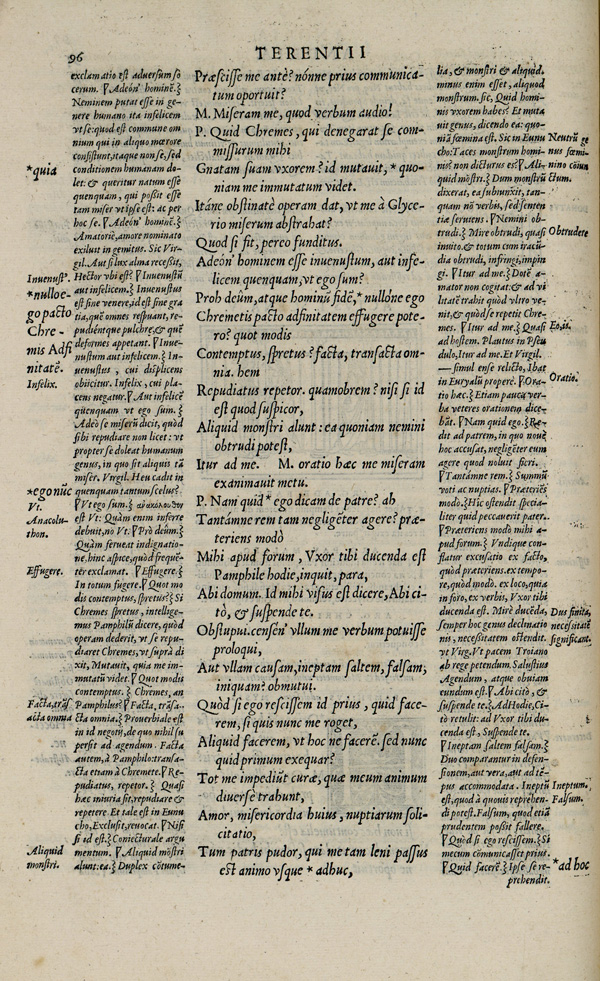 96
TERENTII
*quia
Inuenust⁹.
*nulloe-
go pacto
Chre-
mis Adfi
nitatē.
Infelix.
*ego nūc
Vt.
Anacolu-
thon.
Effugere.
Facta, trās
acta omnia
Aliquid
monstri.
exclamatio est aduersum so
cerum. ꝟ Adeón' hominē.}
Neminem putat esse in ge-
nere humano ita infelicem
vt se: quod est commune om
nium qui in aliquo mœrore
consistunt, itaque non se, sed
conditionem humanam do-
let: & queritur natum esse
quenquam, qui possit esse
tam miser vt ipse est: ac per
hoc se. ꝟ Adeón' hominē.}
Amatoriè, amore nominato
exiluit in gemitus. Sic Vir-
gil. Aut si lux alma recessit,
Hector vbi est? ꝟ Inuenustū
aut infelicem.} Inuenustus
est sine venere, id est sine gra
tia, quē omnes respuant, re-
pudiéntque pulchrę, & quē
deformes appetant. ꝟ Inue-
nustum aut infelicem.} In-
uenustus, cui displicens
obijcitur. Infelix, cui pla-
cens negatur. ꝟ Aut infelicē
quenquam vt ego sum.}
Adeò se miserū dicit, quòd
sibi repudiare non licet: vt
propter se doleat humanum
genus, in quo sit aliquis tā
miser. Virgil. Heu cadit in
quenquam tantum scelus?
ꝟ Vt ego sum.} ἀνακόλουθον
est Vt: Quàm enim inferre
debuit, nō Vt. ꝟ Prò deûm.}
Quàm seruat indignatio-
ne. hinc aspice, quòd frequē-
tèr exclamat. ꝟ Effugere.}
In totum fugere. ꝟ Quot mo
dis contemptus, spretus?} Si
Chremes spretus, intellige-
mus Pamphilū dicere, quòd
operam dederit, vt se repu-
diaret Chremes, vt suprà di
xit, Mutauit, quia me im-
mutatū videt. ꝟ Quot modis
contemptus.} Chremes, an
Pamphilus? ꝟ Facta, trāsa-
cta omnia.} Prouerbiale est
in id negotij, de quo nihil su
persit ad agendum. Facta
autem, à Pamphilo: transa-
cta etiam à Chremete. ꝟ Re-
pudiatus, repetor.} Quasi
hæc iniuria sit, repudiare &
repetere. Et tale est in Eunu
cho, Exclusit, reuocat. ꝟ Nisi
si id est.} Coniecturale argu
mentum. ꝟ Aliquid mōstri
alunt: ea.} Duplex cōtume-
Præscisse me antè? nónne prius communica-
tum oportuit?
M. Miseram me, quod verbum audio!
P. Quid Chremes, qui denegarat se com-
missurum mihi
Gnatam suam vxorem? id mutauit, * quo-
niam me immutatum videt.
Itáne obstinatè operam dat, vt me à Glyce-
rio miserum abstrahat?
Quod si fit, pereo funditus.
Adeón' hominem esse inuenustum, aut infe-
licem quenquam, vt ego sum?
Proh deûm, atque hominū fidē, * nullóne ego
Chremetis pacto adfinitatem effugere pote-
ro? quot modis
Contemptus, spretus? facta, transacta om-
nia. hem
Repudiatus repetor. quamobrem? nisi si id
est quod suspicor,
Aliquid monstri alunt: ea quoniam nemini
obtrudi potest,
Itur ad me. M. oratio hæc me miseram
exanimauit metu.
P. Nam quid * ego dicam de patre? ah
Tantámne rem tam negligēter agere? præ-
teriens modò
Mihi apud forum, Vxor tibi ducenda est
Pamphile hodie, inquit, para,
Abi domum. Id mihi visus est dicere, Abi ci-
tò, & suspende te.
Obstupui. censen' vllum me verbum potuisse
proloqui,
Aut vllam causam, ineptam saltem, falsam,
iniquam? obmutui.
Quòd si ego rescissem id prius, quid face-
rem, si quis nunc me roget,
Aliquid facerem, vt hoc ne facerē. sed nunc
quid primum exequar?
Tot me impediūt curæ, quæ meum animum
diuersè trahunt,
Amor, misericordia huius, nuptiarum soli-
citatio,
Tum patris pudor, qui me tam leni passus
est animo vsque * adhuc,
lia, & monstri & aliquid.
minus enim esset, aliquod
monstrum. sic, Quid homi-
nis vxorem habes? Et muta
uit genus, dicendo ea: quo-
niā fœmina est. Sic in Eunu
cho: Taces monstrom homi-
nis? non dicturus es? ꝟ Ali-
quid mōstri.} Dum monstrū
dixerat, ea subiunxit, tan-
quam nō verbis, sed senten
tiæ seruiens. ꝟ Nemini ob-
trudi.} Mirè obtrudi, quasi
inuito. & totum cum iracū-
dia obtrudi, infringi, impin
gi. ꝟ Itur ad me.} Dotē a-
mator non cogitat: & ad vi
litatē trahit quòd vltro ve-
nit, & quòd se repetit Chre-
mes. ꝟ Itur ad me.} Quasi
ad hostem. Plautus in Pseu
dulo, Itur ad me. Et Virgil.
— simul ense relicto, Ibat
in Euryalū properè. ꝟ Ora-
tio hæc.} Etiam pauca ver-
ba veteres orationem dice-
bāt. ꝟ Nam quid ego.} Re-
dit ad patrem, in quo noué
hoc accusat, negligēter eum
agere quod noluit fieri.
ꝟ Tantámne rem.} Summū
voti ac nuptias. ꝟ Præteriēs
modò.} Hîc ostendit specia-
liter quid peccauerit pater.
ꝟ Præteriens modò mihi a-
pud forum.} Vndique con-
flatur excusatio ex facto,
quòd præteriens. ex tempo-
re, quòd modò. ex loco, quia
in foro, ex verbis, Vxor tibi
ducenda est. Mirè ducēda,
semper hoc genus declinatio
nis, necessitatem ostendit.
vt Virg. Vt pacem Troiano
ab rege petendum. Salustius
Agendum, atque obuiam
eundum est. ꝟ Abi citò, &
suspende te.} Ad Hodie, Ci-
tò retulit: ad Vxor tibi du-
cenda est, Suspende te.
ꝟ Ineptam saltem falsam.}
Duo comparantur in defen-
sionem, aut vera, aut ad tē-
pus accommodata. Ineptū
est, quod à quouis reprehen-
di potest. Falsum, quod etiā
prudentem possit fallere.
ꝟ Quòd si ego rescissem.} Si
mecum communicasset prius.
ꝟ Quid facerē.} Ipse se re-
prehendit.
Neutrū ge
nus fœmi-
nino cōiun
ctum.
Obtrudere
Eo, is.
Oratio.
Dus finita,
necessitatē
significant.
Ineptum.
Falsum.
*ad hoc